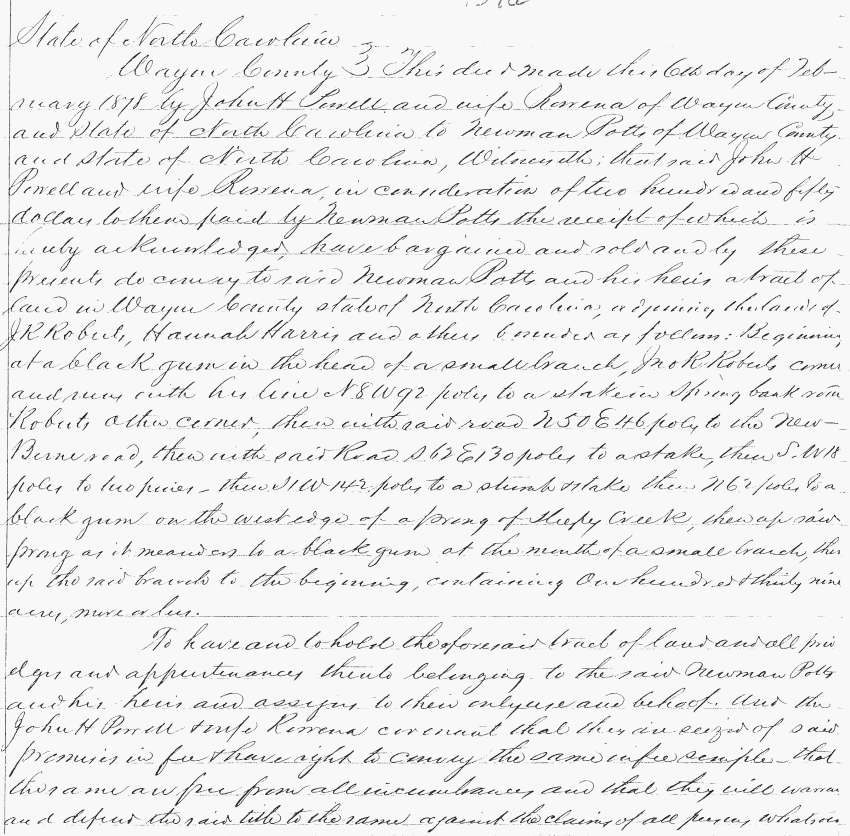 State of North Carolina
Wayne County } This deed made this 6th day of Feb-
ruary 1878 by John H Powell and wife Rowena of Wayne County,
and State of North Carolina to Newman Potts of Wayne County
and state of North Carolina, Witnesseth; that said John H
Powell and wife Rowena, in consideration of two hundred and fifty
dollars to them paid by Newman Potts the receipt of which is
hereby acknowledged, have bargained and sold and by these
presents do convey to said Newman Potts and his heirs a tract of
land in Wayne County state of North Carolina, adjoining the lands of
J. R Roberts, Hannah Harris and others bounded as follows: Beginning
at a black gum in the head of a small branch, Jno R. Roberts corner
and runs with his line N 8 W 92 poles to a stake in Spring bank road
Roberts other corner, then with said road N 50 E 46 poles to the New-
Berne road, then with said Road S 62 E 130 poles to a stake, then S. W 18
poles to two pines - then S 1 W 142 poles to a stumb & stake then N 62 poles to a
black gum on the west edge of a prong of Sleepy Creek, then up said
prong as it meanders to a black gum at the mouth of a small branch, then
up the said branch to the beginning, containing One hundred & thirty nine
acres, more or less.
To have and to hold the aforesaid tract of land and all priv
eleges and appurtenances thereto belonging to the said Newman Potts
and his heirs and assigns to their only use and behoof. And the
John H Powell & wife Rowena covenant that they are seized of said
premises in fee & have right to convey the same in fee simple - that
the same are free from all incumbrances and that they will warran
and defend the said title to the same against the claims of all persons whatsoev